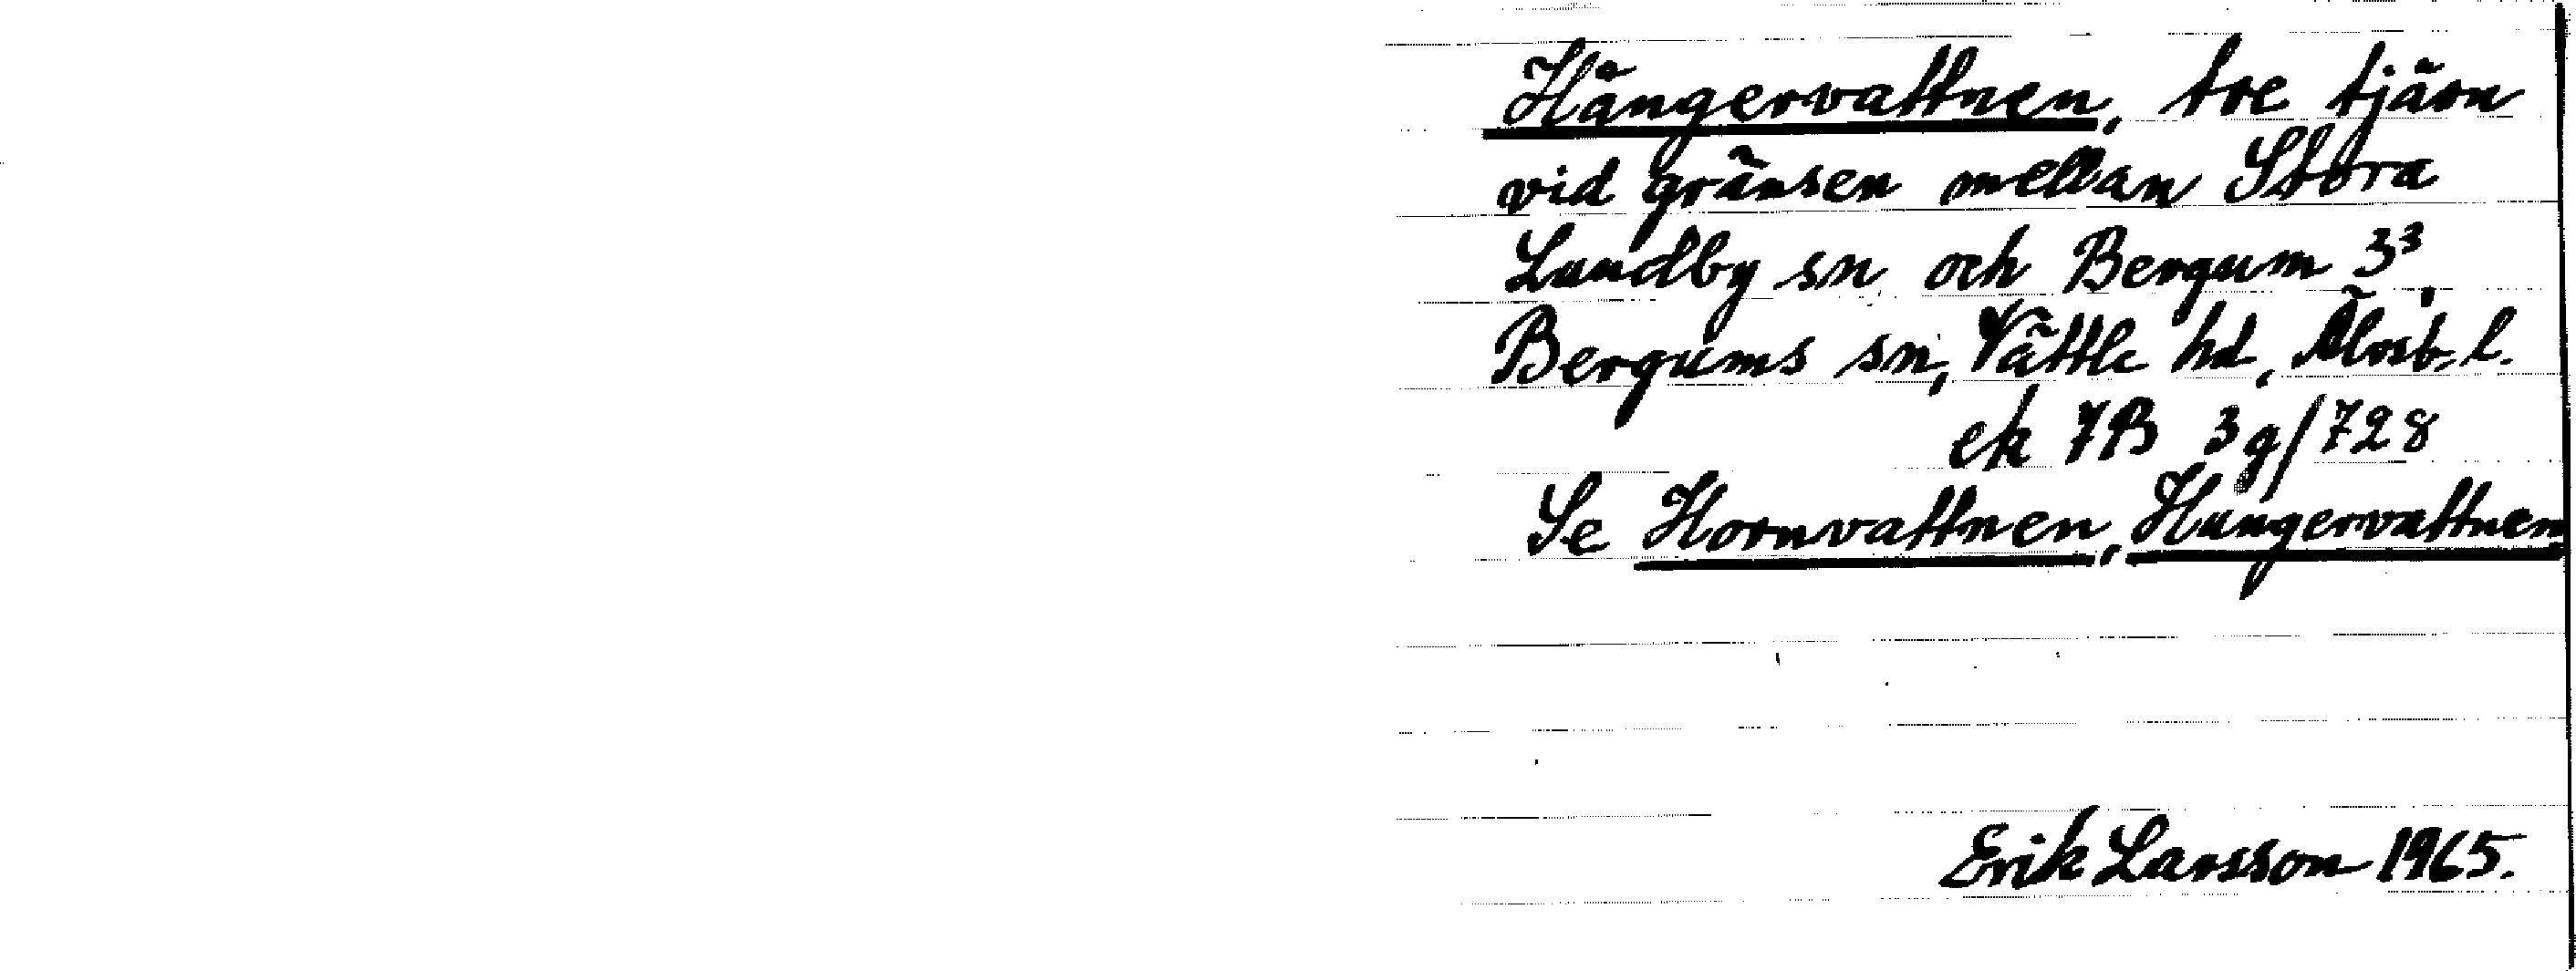 Hångervattnen, tre tjärn
vid gränsen mellan Stora
Lundby sn och Bergum 3³,
Bergums sn, Vättle hd, Älvsb. l.
ek 7B 3g/728
Se Hornvattnen, Hungervattnen
Erik Larsson 1965.